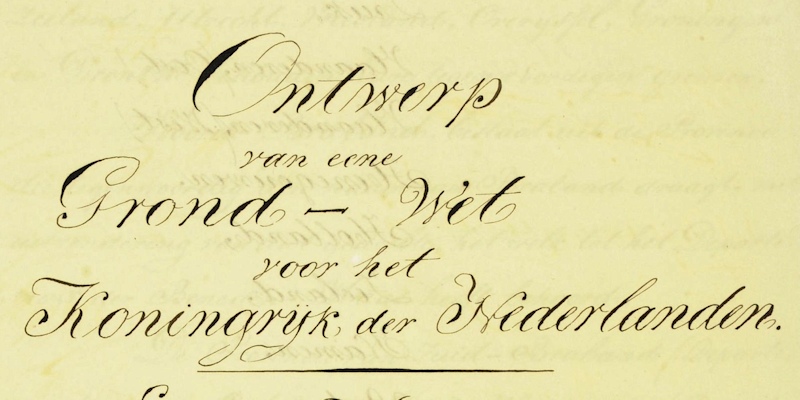 Ontwerp
van eene
Grond – Wet
voor het
Koningrijk der Nederlanden.